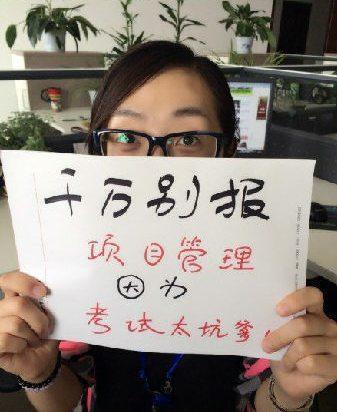 千万别报
项目管理
因为
考试太坑爹